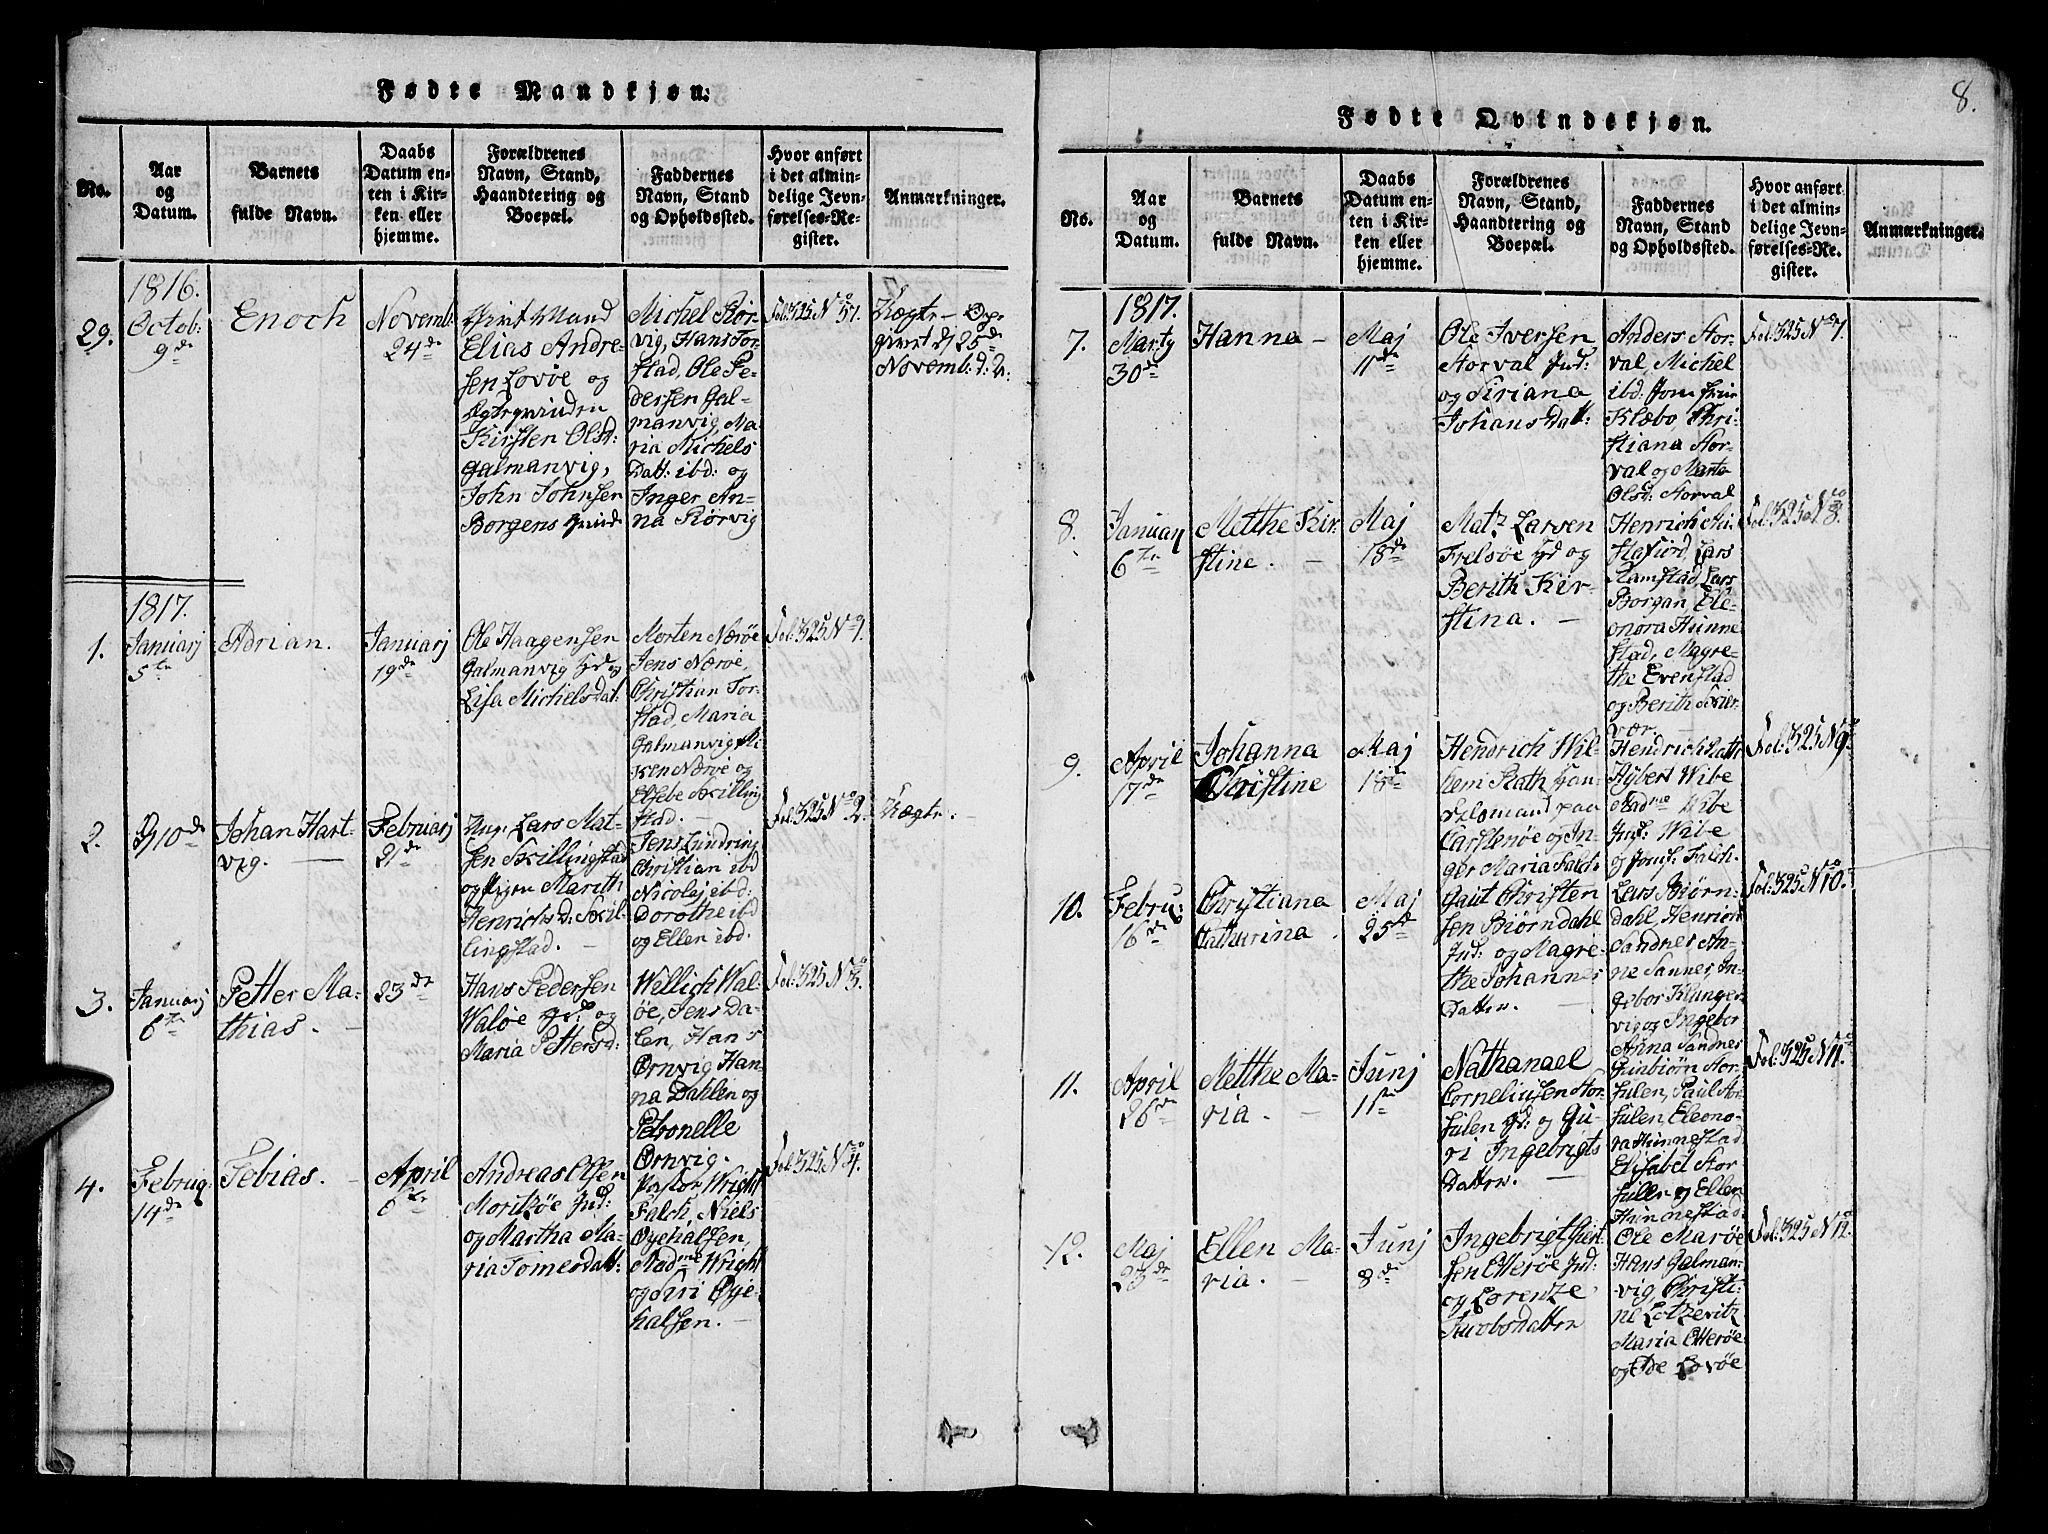 Fødte Mandkjøn.
No.
Aar
og
Datum.
Barnets
fulde Navn.
Daabs
Datum en-
ten i Kir-
ken eller
hjemme.
Forældrenes
Navn, Stand,
Haandtering og
Boepæl.
Faddernes
Navn, Stand
og Opholdssted.
Hvor anført
i det almin-
delige Jevn-
førelses-Re-
gister.
Anmærkninger.
1816.
29.
Octob:
9de
Enoch
Novemb:
24de
Elias Andre-
sen Lovøe og
Kirsten Olsd:
Galmanvig,
John Johnsen
Borgens
Michel Rør-
vig, Hans Tor-
stad, Ole Pe-
dersen Gal-
manvig, Ma-
ria Michels
Datt: ibd: og
Inger An-
na Rørvig
Fol: 325 No 57.
Uægte
givet d 25de
Novemb: d: 2:
1817.
1.
Januarj
5te
Adrian.
Januarj
19de
Ole Haagensen
Galmanvig Gd og
Lisa Michelsdat:
Morten Nærøe
Jens Nærøe,
Christian Tor-
stad, Maria
Galmanvig, Mi-
ken Nærøe og
Elsebe Skilling
stad.
Fol: 325 No 1.
2.
D 10de
Johan Hart-
vig.
Februarj
21de
Lars Mat-
sen Skillingstad
og Pigen Marith
Henrichsd: Skil-
lingstad.
Jens Lundring
Christian ibd
Nicolaj ibd:
Dorothe ibd
og Ellen ibd.
Fol: 325 No 2.
Uægte.
3.
Januarj
6te
Petter Ma-
thias.
23de
Hans Pedersen
Waløe Gd: og
Maria Pettersd:
Wellich Wal-
øe, Jens Da-
len, Hans
Ørnvig, Han-
na Dahlen og
Petronelle
Ørnvig.
Fol: 325 No 3.
4.
Februq:
14de
Tobias.
April
6te
Andreas Olsen
Moriksøe Ind:
og Martha Ma-
ria Tomesdatt:
Pastor Wright
Falch, Niels
Øyehalsen,
Madme Wright
og Siri Øye-
halsen.
Fol: 325 No 4.
8.
Fødte Qvindekjøn.
No.
Aar
og
Datum.
Barnets
fulde Navn.
Daabs
Datum en-
ten i Kir-
ken eller
hjemme.
Forældrenes
Navn, Stand,
Haandtering og
Boepæl.
Faddernes
Navn, Stand
og Opholdssted.
Hvor anført
i det almin-
delige Jevn-
førelses-Re-
gister.
Anmærkninger.
1817.
7.
Martj
30de
Hanna
Maj
11de
Ole Iversen
Storval Ind:
og Siriana
Johans Datt:
Anders Stor-
val, Michel
ibd:
Klæbo, Chri-
stiana Stor-
val og Marta
Olsd: Storval
Fol: 325 No 7.
8.
Januarj
6te
Metthe Kir-
stine.
Maj
18de
Matz Larsen
Frelsøe Gd og
Berith Kir-
stina.
Henrich Mi-
stafiord, Lars
Ramstad, Lars
Borgan, Ele-
onora Hunne-
stad, Magre-
the Evenstad
og Berith Skier-
vær.
Fol: 325 No 8.
9.
April
17de
Johanna
Christine
Maj
18de
Hendrich Wil-
hem Rath Han-
delsmand paa
Carstenøe og In-
ger Maria Falch
Hendrich Rath
Hybert Wibe
Madme Wibe
Jmf: Wibe
og Jomf: Falch.
Fol: 325 No 9.
10.
Febru:
16de
Christiana
Catharina.
Maj
25de
Gaut Christen
sen Biørndahl
Ind: og Magre-
the Johannes
Datter.
Lars Biørn-
dahl, Henrich
Sandnes, An-
ne Sannes, In-
gebor Klunger
vig og Ingebor
Anna Sandnes
Fol: 325 No 10.
11.
April
26de
Metthe Ma-
ria.
Junj
1ste
Nathanael
Corneliussen Stor-
sulen Gd: og Gu-
ri Ingebrigts
Datter.
Gunbiørn Stor-
sulen, Paul Stor
sulen, Eleono-
ra Hunnestad
Elisabet Stor
sullen og Ellen
Hunnestad
Fol: 325 No 11.
12.
Maj
23de
Ellen Ma-
ria.
Junj
8de
Ingebrigt Giert
sen Etterøe Ind:
og Lorentze
Jacobsdatter
Ole Marøe
Hans Galman-
vig, Christi-
ne Lotzeritz
Maria Etterøe
og Ede Lovøe
Fol: 325 No 12.